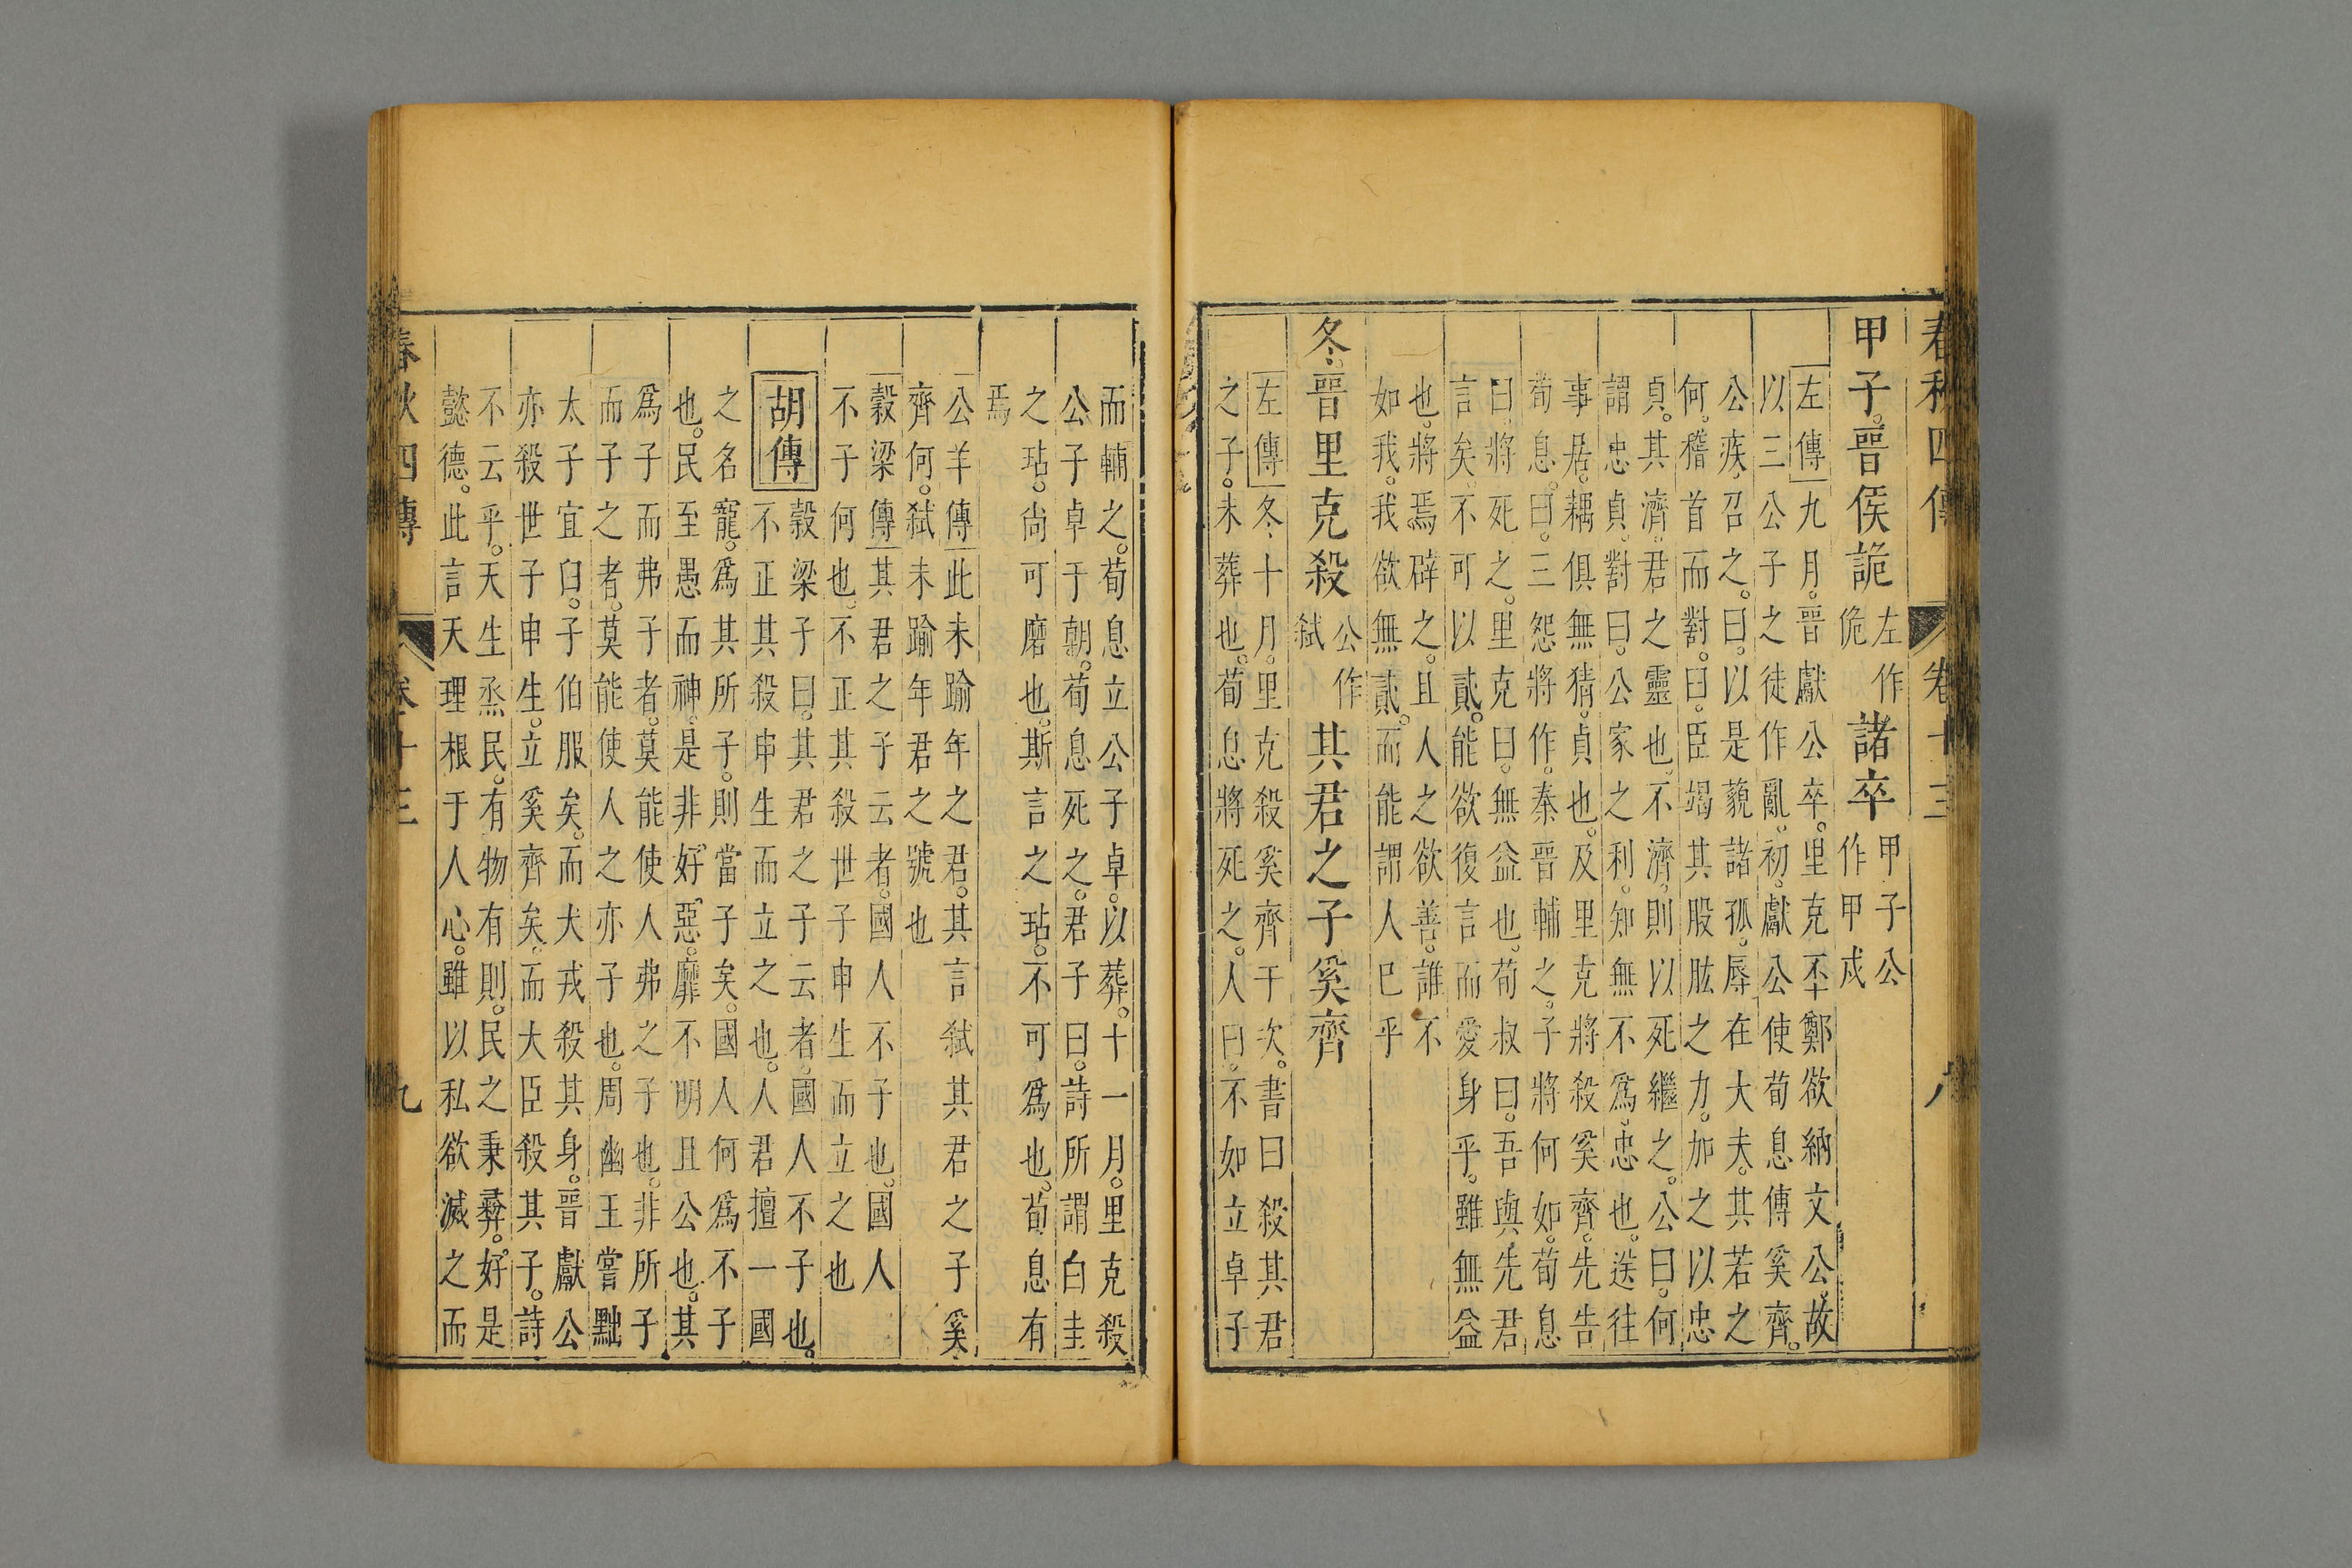 春秋四傳 卷十三 八
甲子。晉侯詭左作佹諸卒甲子公作甲戌
左傳九月。晉獻公卒。里克㔻鄭欲納文公。故
以三公子之徒作亂。初。獻公使荀息傅奚齊。
公疾。召之。曰。以是藐諸孤。辱在大夫。其若之
何。稽首而對。曰。臣竭其股肱之力。加之以忠
貞。其濟。君之靈也。不濟。則以死繼之。公曰。何
謂忠貞。對曰。公家之利。知無不爲。忠也。送往
事居。耦俱無猜。貞也。及里克將殺奚齊。先告
荀息。曰。三怨將作。秦晉輔之。子將何如。荀息
曰。將死之。里克曰。無益也。荀叔曰。吾與先君
言矣。不可以貳。能欲復言而愛身乎。雖無益
也。將焉辟之。且人之欲善。誰不
如我。我欲無貳。而能謂人已乎
冬。晉里克殺公作弒其君之子奚齊
左傳冬。十月。里克殺奚齊于次。書曰殺其君
之子。未葬也。荀息將死之。人曰。不如立卓子
而輔之。荀息立公子卓。以葬。十一月。里克殺
公子卓于朝。荀息死之。君子曰。詩所謂白圭
之玷。尚可磨也。斯言之玷。不可爲也。荀息有
焉
公羊傳此未踰年之君。其言弒其君之子奚
齊何。弒未踰年君之號也
穀梁傳其君之子云者。國人不子也。國人
不子何也。不正其殺世子申生而立之也
胡傳穀梁子曰。其君之子云者。國人不子也。
不正其殺申生而立之也。人君擅一國
之名寵。爲其所子。則當子矣。國人何爲不子
也。民至愚而神。是非好惡。靡不明且公也。其
爲子而弗子者。莫能使人弗之子也。非所子
而子之者。莫能使人之亦子也。周幽王嘗黜
太子宜臼。子伯服矣。而犬戎殺其身。晉獻公
亦殺世子申生。立奚齊矣。而大臣殺其子。詩
不云乎。天生烝民。有物有則。民之秉彝。好是
懿德。此言天理根于人心。雖以私欲滅之而
春秋四傳 卷十三 九